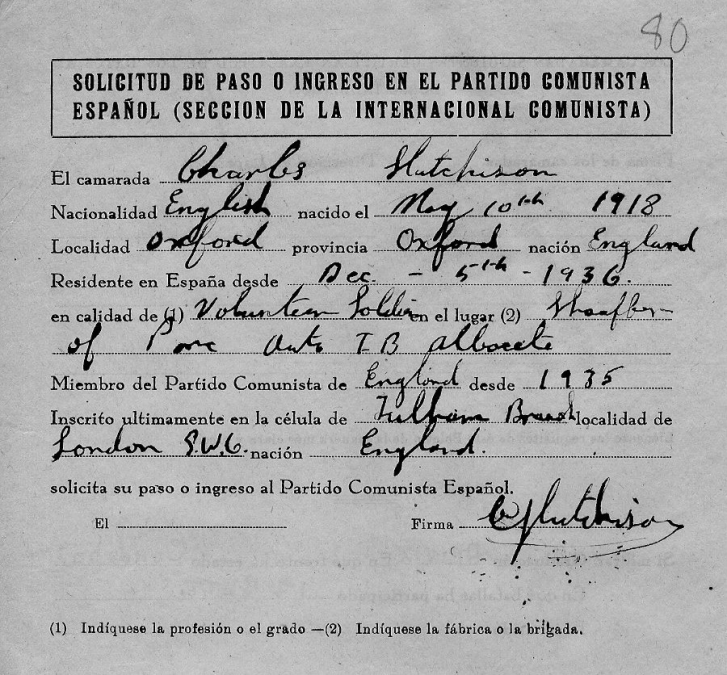 80
SOLICITUD DE PASO O INGRESO EN EL PARTIDO COMUNISTA
ESPAÑOL (SECCION DE LA INTERNACIONAL COMUNISTA)
El camarada Charles Hutchison
Nacionalidad English nacido el May 10th 1918
Localidad Oxford provincia Oxford nación England
Residente en España desde Dec. - 5th - 1936.
en calidad de (1) Volunteer Soldier en el lugar (2)
of Parc Auto I B Albacete
Miembro del Partido Comunista de England desde 1935
Inscrito ultimamente en la célula de Fulham Branch localidad de
London S.W.6. nación England.
solicita su paso o ingreso al Partido Comunista Español.
El Firma C Hutchison
(1) Indíquese la profesión o el grado —(2) Indíquese la fábrica o la brigada.